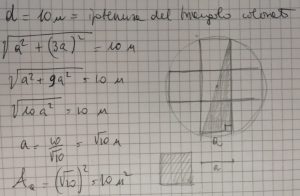 d = 10 m = ipotenusa del triangolo colorato
√(a² + (3a)²) = 10 m
√(a² + 9a²) = 10 m
√(10a²) = 10 m
a = 10/√10 = √10 m
A = (√10)² = 10 m²
a
a